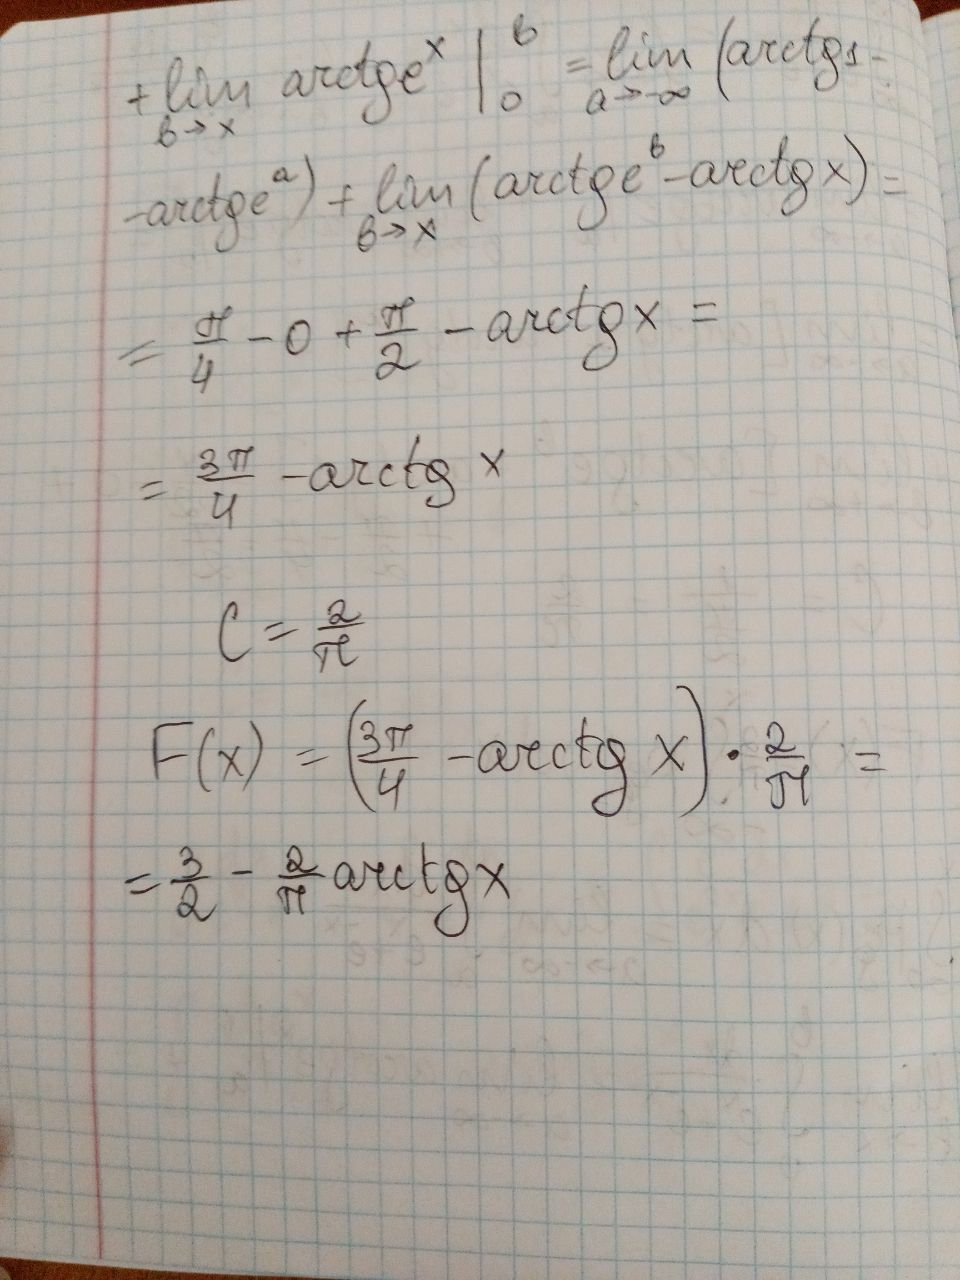 + lim arctg e^x |_0^b = lim (arctg 1 -
b→x a→-∞
- arctg e^a) + lim (arctg e^b - arctg x) =
b→x
= π/4 - 0 + π/2 - arctg x =
= 3π/4 - arctg x
C = 2/π
F(x) = (3π/4 - arctg x) · 2/π =
= 3/2 - 2/π arctg x